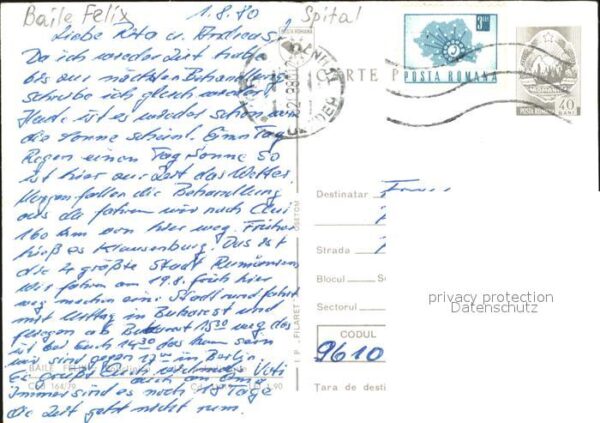 Baile Felix 1.8.80 Spital
Liebe Rita u. Andreas!
Da ich wieder Zeit habe
bis zur nächsten Behandlung
schreibe ich gleich wieder.
Heute ist es wieder schön
die Sonne scheint. Einen Tag
Regen einen Tag Sonne so
ist hier zur Zeit das Wetter.
Morgen fallen die Behandlung
aus da fahren wir nach Cluj
160 km von hier weg. Früher
hieß es Klausenburg. Das ist
die 4 größte Stadt Rumäniens
Wir fahren am 19.8. früh hier
weg machen eine Stadtrundfahrt
mit Mittag in Bukarest und
fliegen ab Bukarest 15 30 weg das
ist bei Euch 14 30 das
wir sind gegen 17 in Berlin.
Es grüßt Euch Vati
auch
Immer sind es noch 18 Tage
die Zeit geht nicht rum.
BAILE FELIX
CP 164/79
Lei 1,90
I. P. FILARET
POSTA ROMANA
CARTE P
3
POSTA ROMANA
POSTA ROMANA
40
BANI
Destinatar
Strada
Blocul
Sectorul
CODUL
9610
Țara de desti
privacy protection
Datenschutz